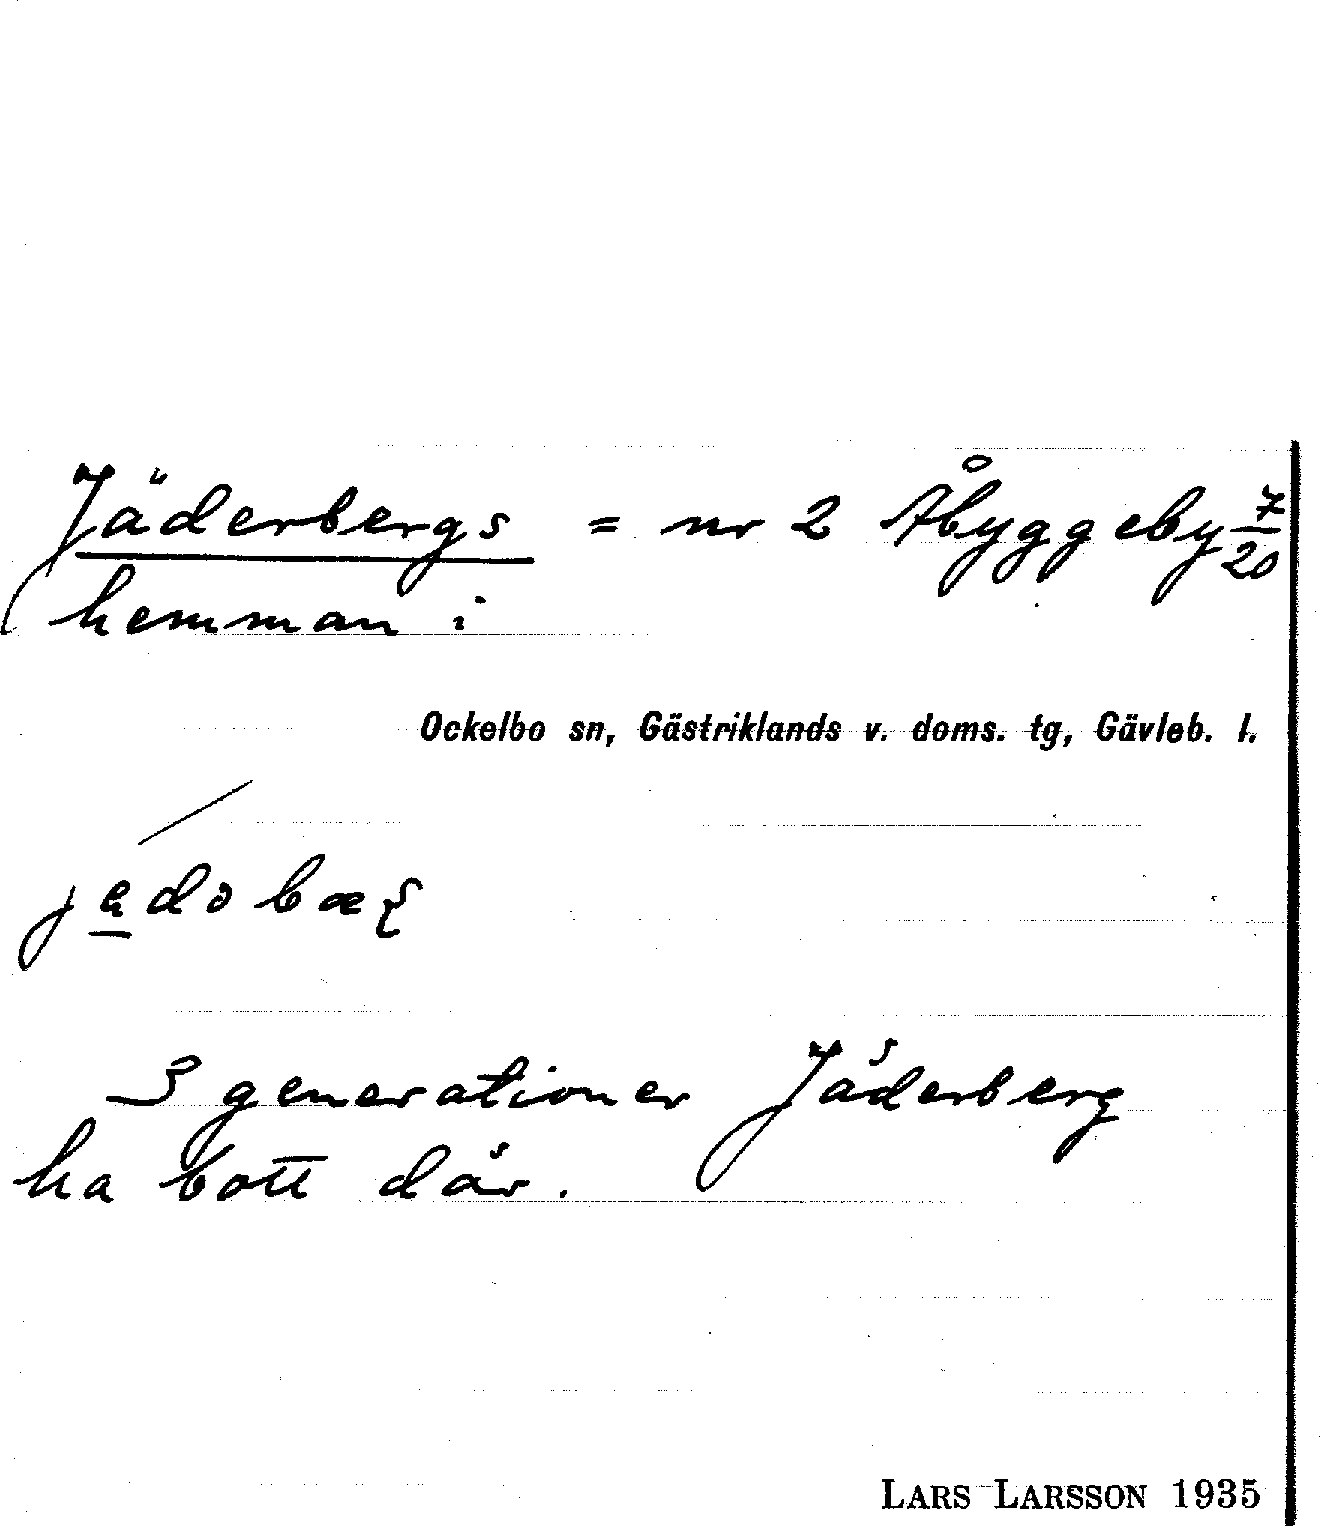 Jäderbergs = nr 2 Åbyggeby 7/20
hemman i
Ockelbo sn, Gästriklands v. doms. tg, Gävleb. l.
3 generationer Jäderberg
ha bott där.
LARS LARSSON 1935